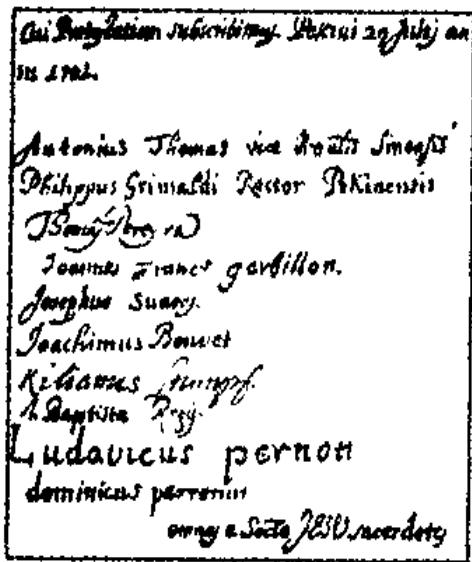 Cui Protestationi subscribimus Pekini 29 Julij an
ni 1702.
Antonius Thomas vice
Philippus Grimaldi Rector Pekinensis
Thomas Pereyra
Joannes Franc gerbillon.
Josephus Suarez
Joachimus Bouvet
Kilianus Stumpf.
J. Baptista Regis.
Ludavicus pernon
dominicus parrenin
omnes e Socte JESU sacerdotes